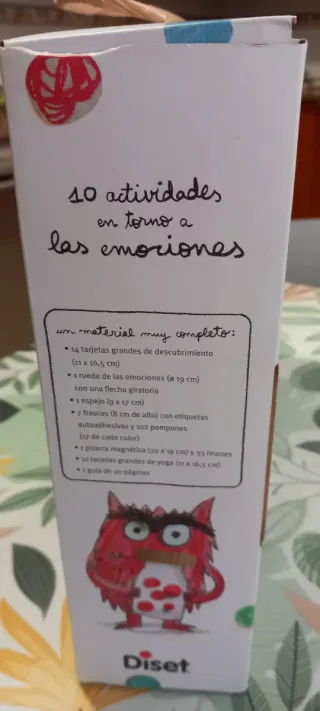 10 actividades
en torno a
las emociones
un material muy completo:
• 14 tarjetas grandes de descubrimiento
(11 x 16,5 cm)
• 1 rueda de las emociones (ø 19 cm)
con una flecha giratoria
• 1 espejo (9 x 17 cm)
• 7 frascos (8 cm de alto) con etiquetas
autoadhesivas y 102 pompones
(17 de cada color)
• 1 pizarra magnética (20 x 19 cm) y 33 imanes
• 10 tarjetas grandes de yoga (11 x 16,5 cm)
• 1 guía de 20 páginas
Diset